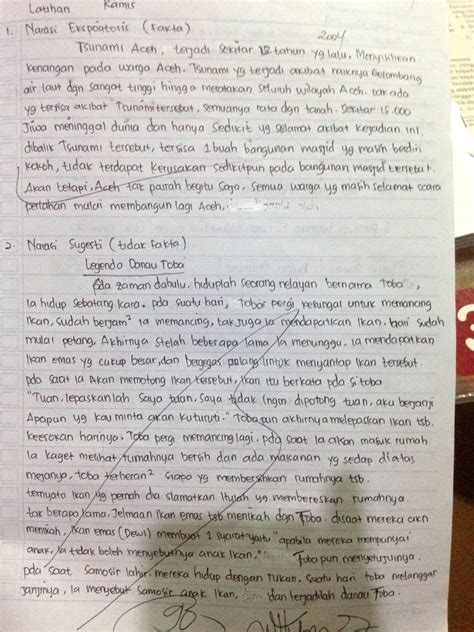 Latihan Kamis
1. Narasi Ekspoitoris (Fakta) 2004
Tsunami Aceh, terjadi sekitar 12 tahun yg lalu, Menyisihkan
kenangan pada warga Aceh. Tsunami yg terjadi akibat naiknya Gelombang
air laut dgn sangat tinggi hingga meratakan seluruh wilayah Aceh. tak ada
yg tersisa akibat Tsunami tersebut, semuanya rata dgn tanah. Sekitar 15.000
Jiwa meninggal dunia dan hanya sedikit yg selamat akibat kejadian ini
dibalik Tsunami tersebut, tersisa 1 buah bangunan masjid yg masih berdiri
kokoh, tidak terdapat kerusakan sedikitpun pada bangunan masjid tersebut.
Akan tetapi, Aceh tak pasrah begitu saja, semua warga yg masih selamat secara
perlahan mulai membangun lagi Aceh.
2. Narasi Sugesti (tidak fakta)
Legendo Danau Toba
Pda zaman dahulu, hiduplah seorang nelayan bernama Toba,
Ia hidup sebatang kara. pda suatu hari, Toba pergi kesungai untuk memancing
Ikan, sudah berjam² ia memancing, tak juga Ia mendapatkan Ikan, hari sudah
mulai petang, Akhirnya stelah beberapa lama Ia menunggu, Ia mendapatkan
Ikan emas yg cukup besar, dan bergegas pulang untuk menyantap Ikan tersebut.
pda saat Ia Akan memotong Ikan tersebut, Ikan itu berkata pda si toba
"Tuan, lepaskanlah saya tuan, Saya tidak Ingin dipotong tuan, aku berjanji
Apapun yg kau minta akan kuturuti." Toba pun akhirnya melepaskan Ikan tsb.
keesokan harinya, Toba pergi memancing lagi, pda saat Ia masuk rumah
Ia kaget melihat rumahnya bersih dan ada makanan yg sedap diatas
mejanya, toba terheran² siapa yg membersihkan rumahnya tsb.
ternyata Ikan yg pernah dia slamatkan Itulah yg membereskan rumahnya.
tak berapa lama, Jelmaan Ikan emas tsb menikah dgn Toba. disaat mereka akn
menikah, Ikan emas (Dewi) membuat 1 syarat yaitu "apabila mereka mempunyai
anak, Ia tidak boleh menyebutnya anak Ikan," Toba pun menyetujuinya.
pda saat samosir lahir, mereka hidup dengan rukun, suatu hari toba melanggar
janjinya, Ia menyebut samosir anak Ikan, dan terjadilah danau Toba.